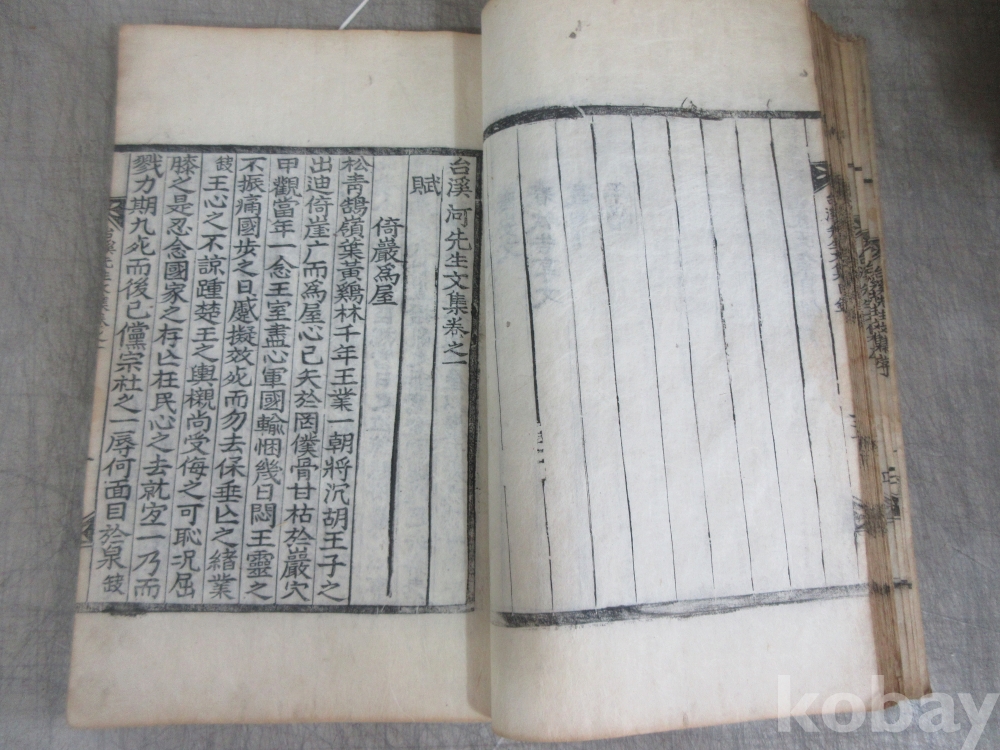 台溪河先生文集卷之一
賦
倚巖爲屋
松青鵠嶺葉黃鷄林千年王業一朝將沉胡王子之
出迪倚崖广而爲屋心已矢於罔僕骨甘枯於巖穴
甲觀當年一念王室盡心軍國輸悃幾日悶王靈之
不振痛國步之日蹙擬效死而勿去保垂亾之緖業
玆王心之不諒踵楚王之輿櫬尚受侮之可恥況屈
膝之是忍念國家之存亾在民心之去就宜一乃而
戮力期九死而後已儻宗社之一辱何面目於泉玆
kobay